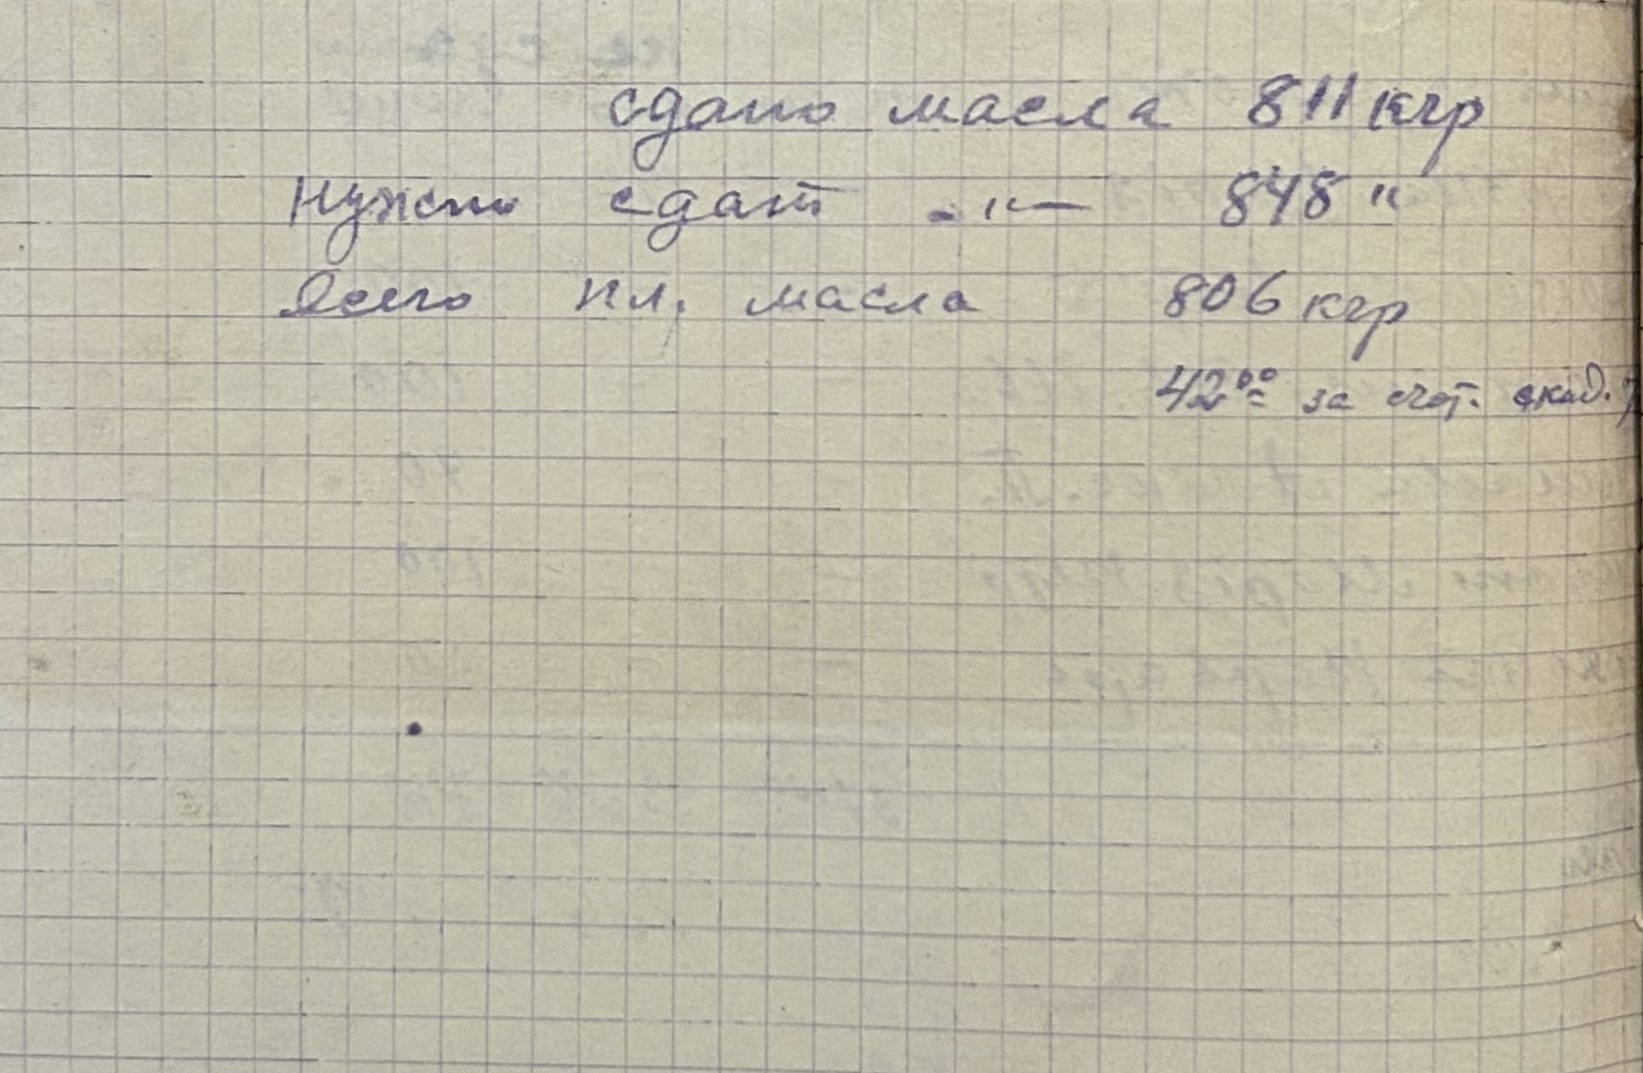 сдано масла 811 кгр
Нужно сдат -"- 848 "
Всего пл. масла 806 кгр
42⁰⁰ за счот.